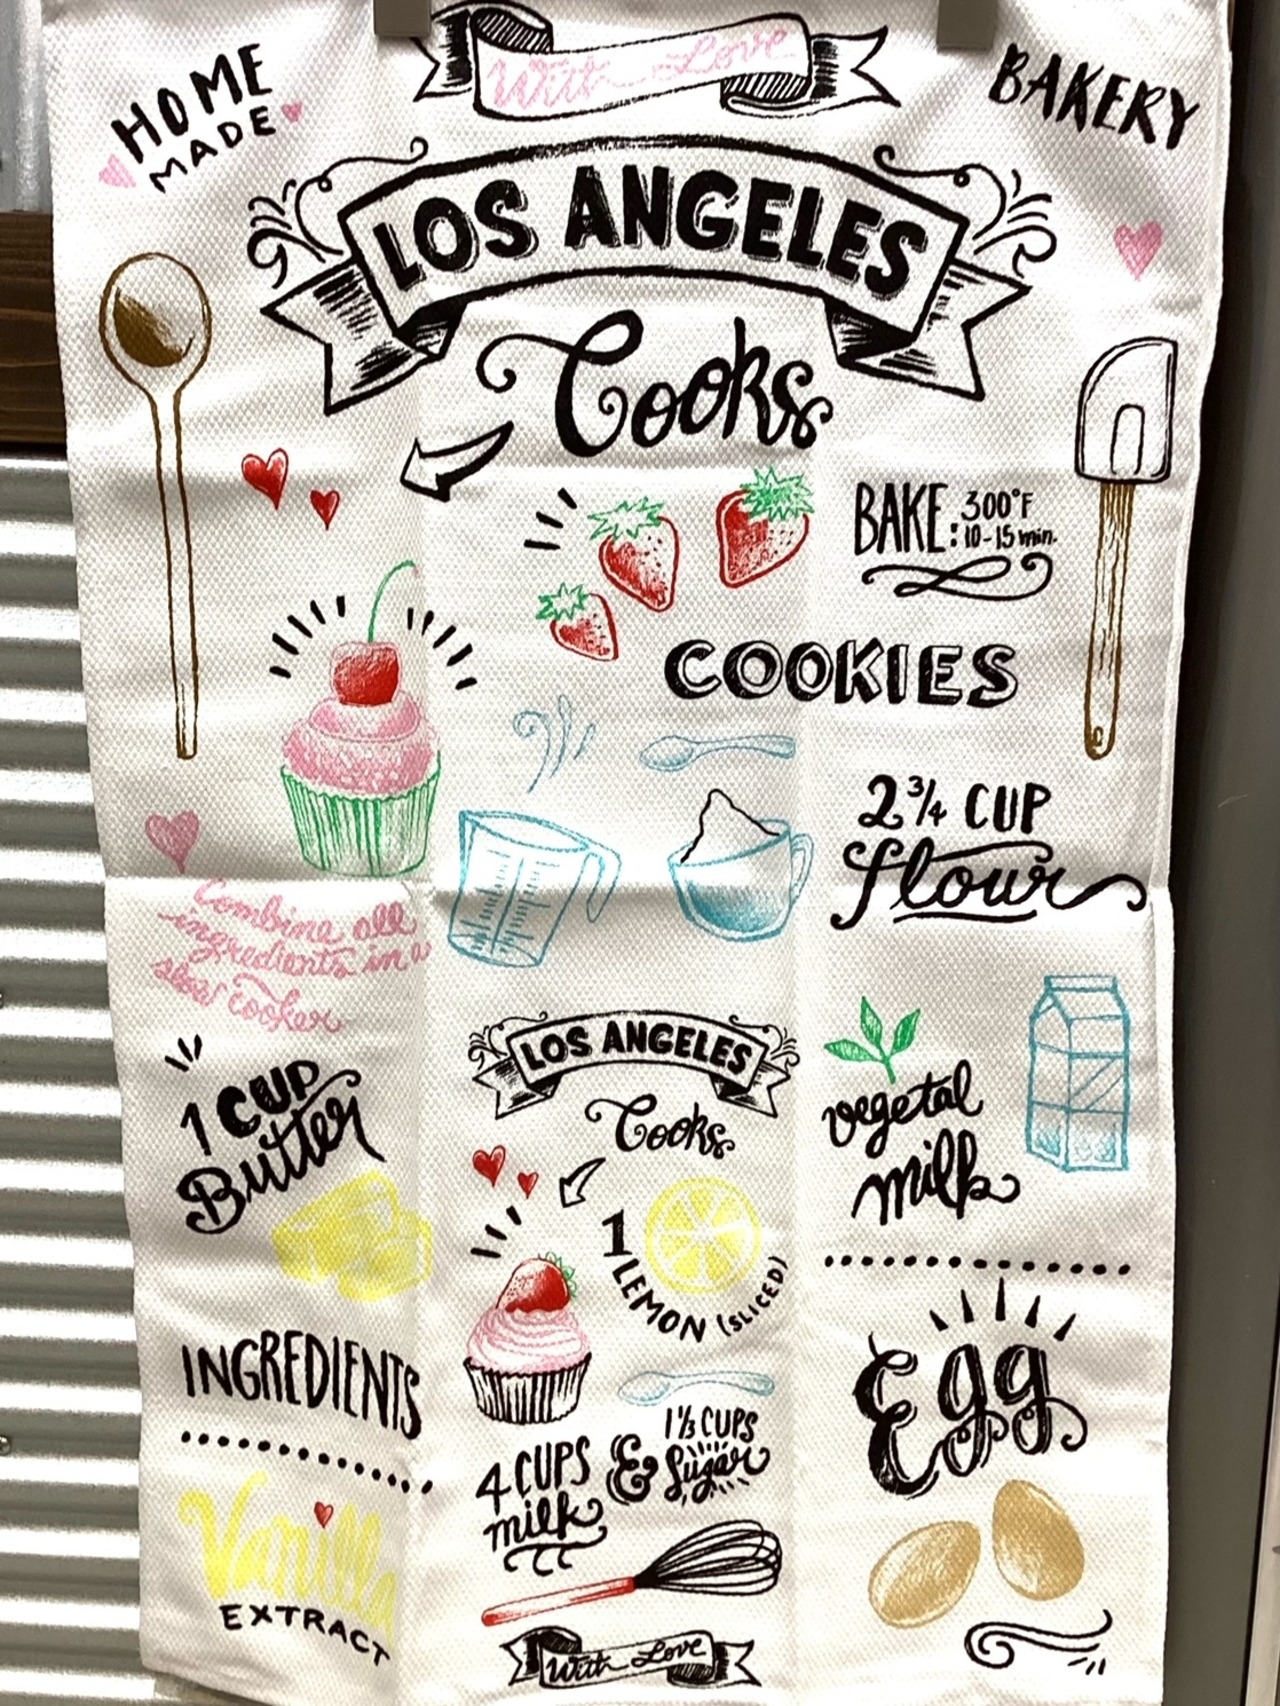 With Love
HOME
MADE
BAKERY
LOS ANGELES
Cooks
BAKE: 300°F
10-15 min.
COOKIES
2 3/4 CUP
flour
Combine all
ingredients in a
slow cooker
1 CUP
Butter
LOS ANGELES
Cooks
vegetal
milk
1 LEMON (SLICED)
INGREDIENTS
Egg
4 CUPS
milk
&
1 1/3 CUPS
Sugar
Vanilla
EXTRACT
With Love